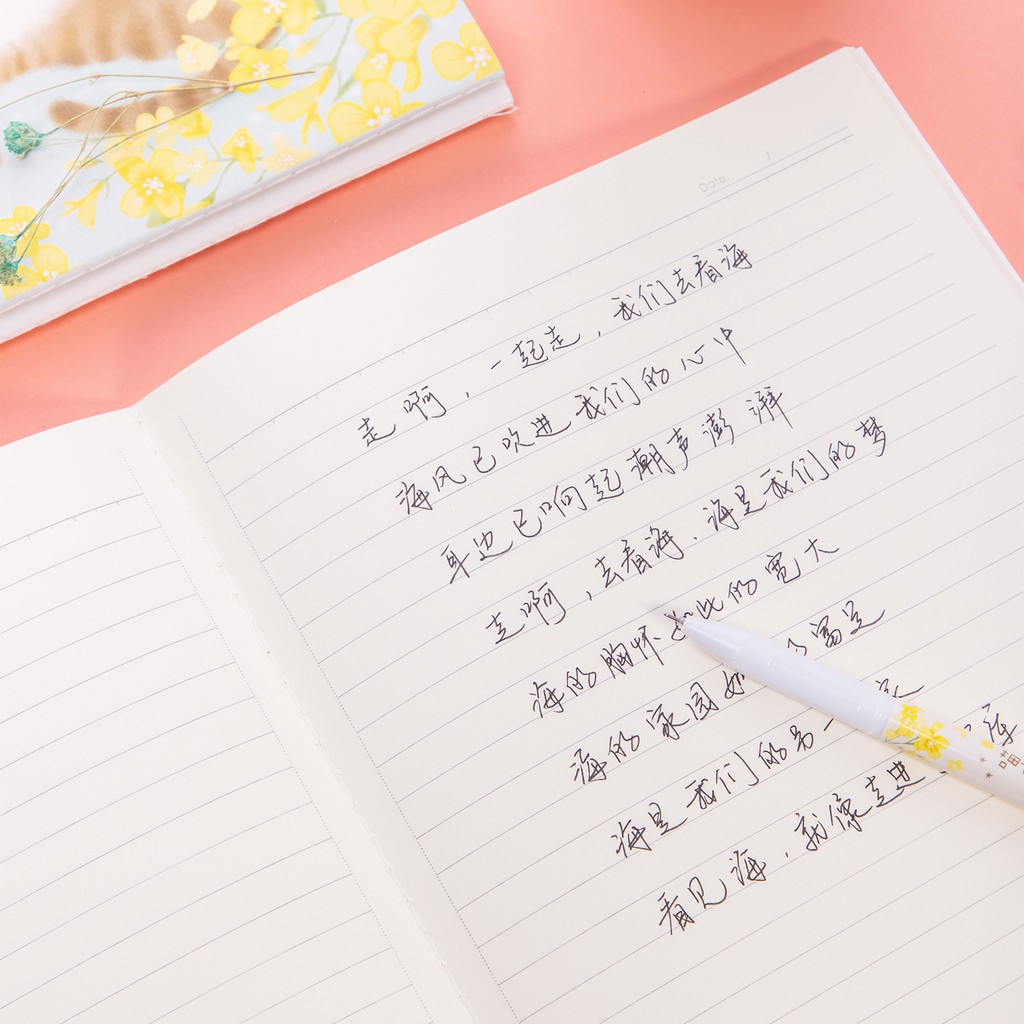 Date.
走啊，一起走，我们去看海
海风已吹进我们的心中
耳边已响起潮声澎湃
走啊，去看海、海是我们的梦
海的胸怀如此的宽大
海的家园如 的富足
海是我们的另一
看见海，就像走进
喵